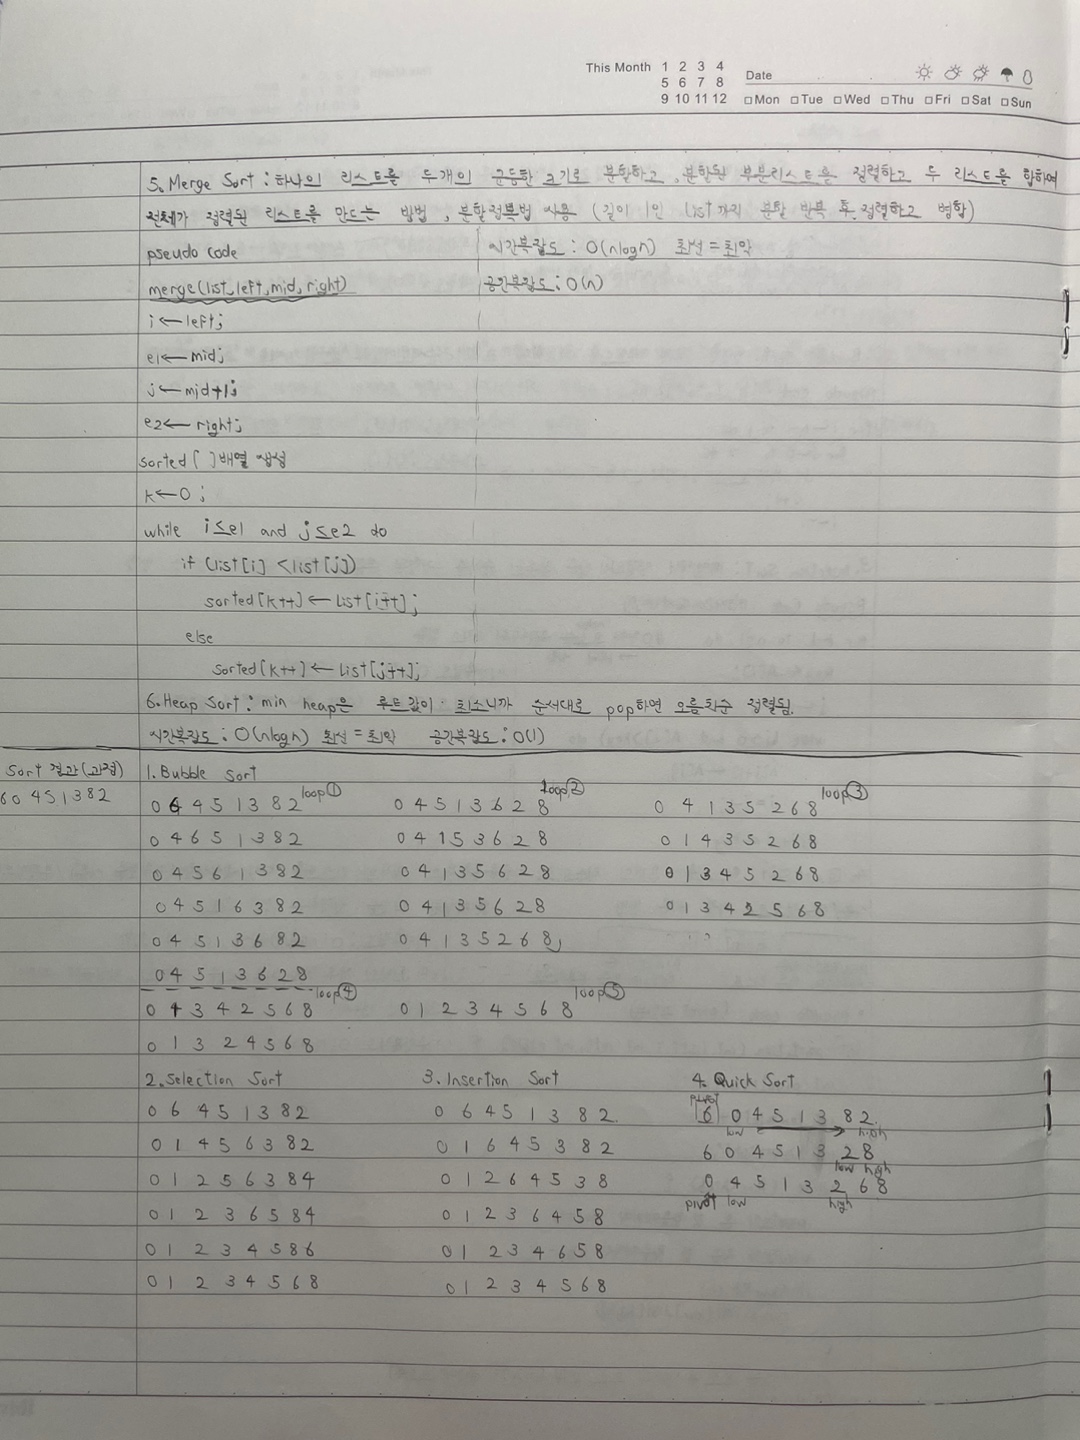 This Month 1 2 3 4
5 6 7 8
9 10 11 12
Date
□Mon □Tue □Wed □Thu □Fri □Sat □Sun
5. Merge Sort : 하나의 리스트를 두개의 균등한 크기로 분할하고, 분할된 부분리스트를 정렬하고 두 리스트를 합하여
전체가 정렬된 리스트를 만드는 방법, 분할정복법 사용 (길이 1인 list까지 분할 반복 후 정렬하고 병합)
pseudo code
시간복잡도 : O(nlogn) 최선 = 최악
merge(list, left, mid, right)
공간복잡도 : O(n)
i ← left;
e1 ← mid;
j ← mid+1;
e2 ← right;
sorted[ ] 배열 생성
k ← 0 ;
while i ≤ e1 and j ≤ e2 do
if (list[i] < list[j])
sorted[k++] ← list[i++];
else
sorted[k++] ← list[j++];
6. Heap Sort : min heap은 루트값이 최소니까 순서대로 pop하면 오름차순 정렬됨.
시간복잡도 : O(nlogn) 최선 = 최악 공간복잡도 : O(1)
Sort 결과(과정)
60451382
1. Bubble Sort
0 6 4 5 1 3 8 2 loop①
0 4 6 5 1 3 8 2
0 4 5 6 1 3 8 2
0 4 5 1 6 3 8 2
0 4 5 1 3 6 8 2
0 4 5 1 3 6 2 8
0 4 5 1 3 6 2 8 loop②
0 4 1 5 3 6 2 8
0 4 1 3 5 6 2 8
0 4 1 3 5 6 2 8
0 4 1 3 5 2 6 8
0 4 1 3 5 2 6 8 loop③
0 1 4 3 5 2 6 8
0 1 3 4 5 2 6 8
0 1 3 4 2 5 6 8
0 1 3 4 2 5 6 8 loop④
0 1 3 2 4 5 6 8
0 1 2 3 4 5 6 8 loop⑤
2. Selection Sort
0 6 4 5 1 3 8 2
0 1 4 5 6 3 8 2
0 1 2 5 6 3 8 4
0 1 2 3 6 5 8 4
0 1 2 3 4 5 8 6
0 1 2 3 4 5 6 8
3. Insertion Sort
0 6 4 5 1 3 8 2
0 1 6 4 5 3 8 2
0 1 2 6 4 5 3 8
0 1 2 3 6 4 5 8
0 1 2 3 4 6 5 8
0 1 2 3 4 5 6 8
4. Quick Sort
pivot
6 0 4 5 1 3 8 2
low high
6 0 4 5 1 3 2 8
low high
0 4 5 1 3 2 6 8
pivot low high